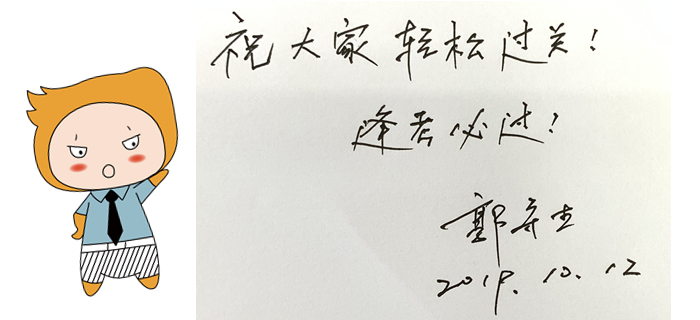 祝大家轻松过关!
逢考必过!
郭守杰
2019.10.12